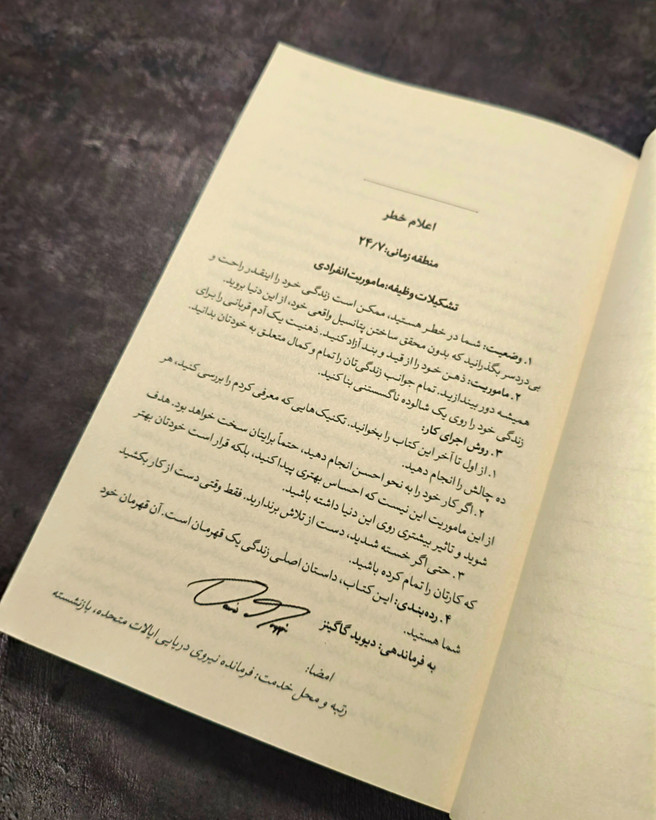 اعلام خطر
منطقه زمانی: ۲۴/۷
تشکیلات وظیفه: ماموریت انفرادی
۱. وضعیت: شما در خطر هستید، ممکن است زندگی خود را اینقدر راحت و
بی‌دردسر بگذرانید که بدون محقق ساختن پتانسیل واقعی خود، از این دنیا بروید.
۲. ماموریت: ذهن خود را از قید و بند آزاد کنید. ذهنیت یک آدم قربانی را برای
همیشه دور بیندازید. تمام جوانب زندگی‌تان را تمام و کمال متعلق به خودتان بدانید.
زندگی خود را روی یک شالوده ناگسستنی بنا کنید.
۳. روش اجرای کار:
۱. از اول تا آخر این کتاب را بخوانید. تکنیک‌هایی که معرفی کردم را بررسی کنید، هر
ده چالش را انجام دهید.
۲. اگر کار خود را به نحو احسن انجام دهید، حتماً برایتان سخت خواهد بود. هدف
از این ماموریت این نیست که احساس بهتری پیدا کنید، بلکه قرار است خودتان بهتر
شوید و تاثیر بیشتری روی این دنیا داشته باشید.
۳. حتی اگر خسته شدید، دست از تلاش برندارید. فقط وقتی دست از کار بکشید
که کارتان را تمام کرده باشید.
۴. رده‌بندی: این کتاب، داستان اصلی زندگی یک قهرمان است. آن قهرمان خود
شما هستید.
به فرماندهی: دیوید گاگینز
امضا:
رتبه و محل خدمت: فرمانده نیروی دریایی ایالات متحده، بازنشسته